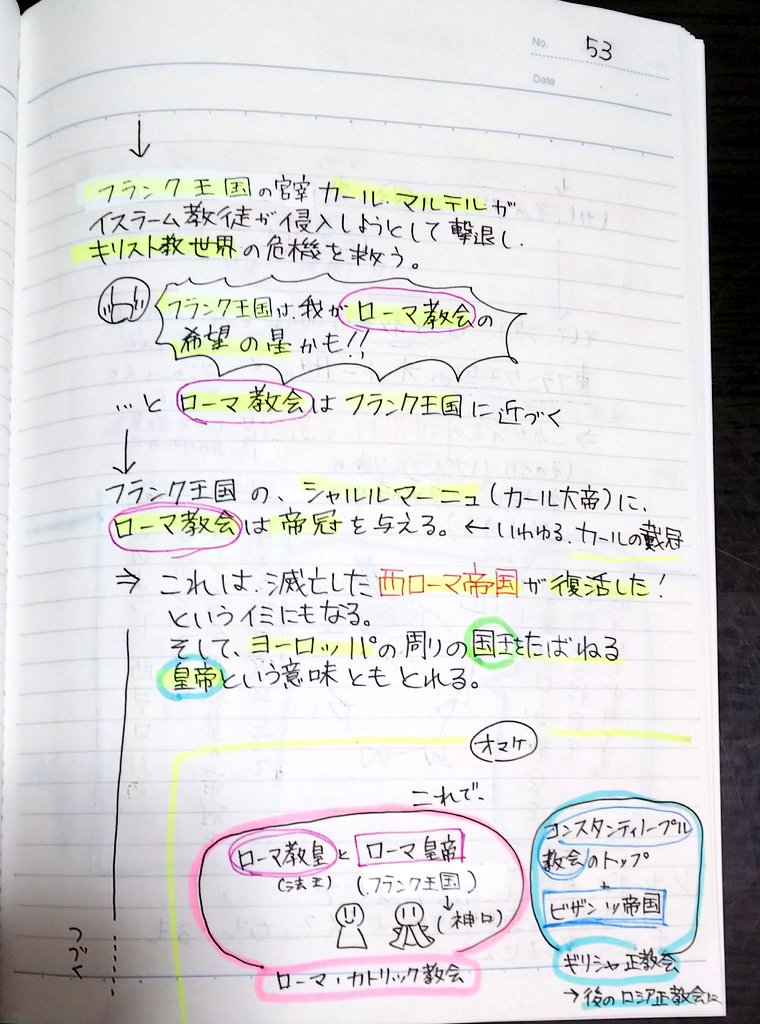 No. 53
Date
↓
フランク王国の宮宰カール・マルテルが
イスラーム教徒が侵入しようとして撃退し、
キリスト教世界の危機を救う。
フランク王国は、我がローマ教会の
希望の星かも!!
…と ローマ教会はフランク王国に近づく
↓
フランク王国の、シャルルマーニュ(カール大帝)に、
ローマ教会は帝冠を与える。←いわゆる、カールの戴冠
⇒ これは、滅亡した西ローマ帝国が復活した!
というイミにもなる。
そして、ヨーロッパの周りの国王をたばねる
皇帝という意味ともとれる。
オマケ
これで、
ローマ教皇と ローマ皇帝
(法王) (フランク王国)
↓
ローマ・カトリック教会
コンスタンティノープル
教会のトップ
+
ビザンツ帝国
ギリシャ正教会
→後のロシア正教会に
つづく